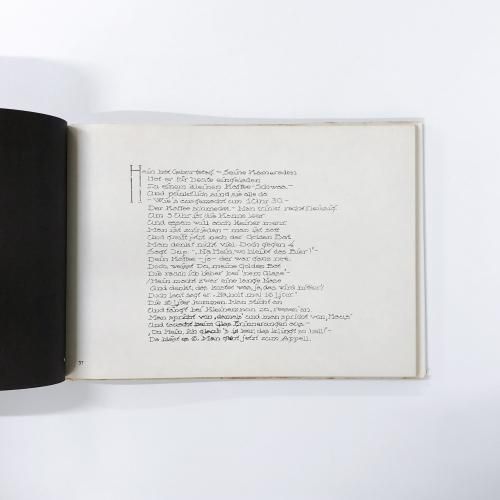 Hein hat Geburtstag – Seine Kameraden
Hat er für heute eingeladen
Zu einem kleinen Kaffee-Schwoo. –
Und pünktlich sind sie alle da
– Wie's ausgemacht um 1 Uhr 30. –
Der Kaffee schmeckt – Man trinkt recht fleissig.
Um 3 Uhr ist die Kanne leer
Und essen will auch keiner mehr.
Man ist zufrieden – man ist satt
Und greift jetzt nach der Golden Bat.
Man denkt nicht viel. Doch gegen 4
Sagt „Na Hein wo bleibt das Bier?"–
Dein Kaffee – ja – der war ganz nett.
Doch weisst Du, meine Golden Bat
Die rauch ich lieber bei 'nem Glase"–
Hein macht zwar eine lange Nase
Und denkt: „das kostet was, ja, das wird bitter!
Doch laut sagt er
Die 10 Liter kommen. Man stösst an
Und fängt bei Kleinemann zu „ an.
Man spricht von „damals" und man spricht von
Und tauscht beim Glas Erinnerungen aus –
„Du Hein, ich glaub's is leer, das klingt so hohl!"–
Da bläst es 6. Man geht jetzt zum Appell.
37